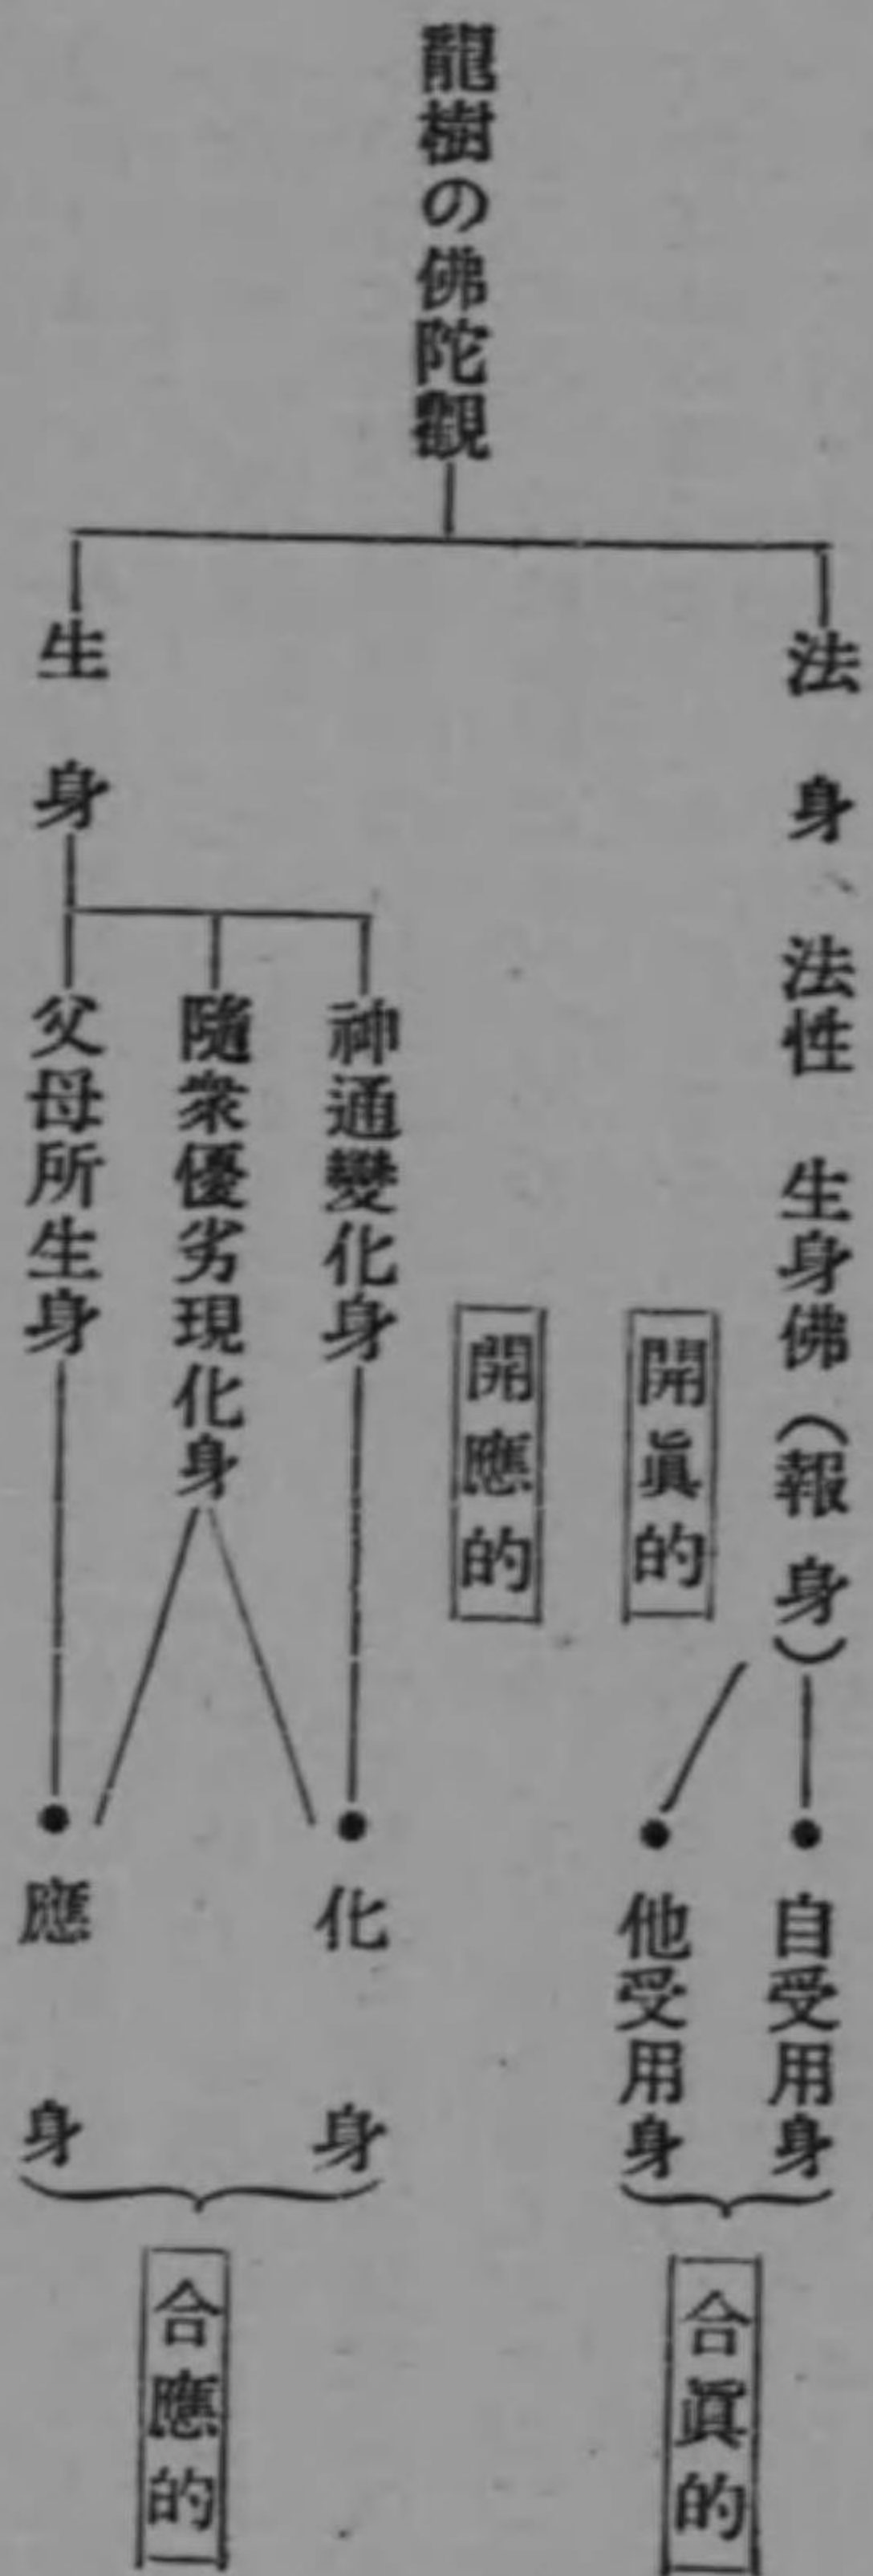 龍樹の佛陀觀
法身、法性生身佛（報身）
自受用身
他受用身
合眞的
開眞的
開應的
生身
神通變化身
隨衆優劣現化身
父母所生身
化身
應身
合應的